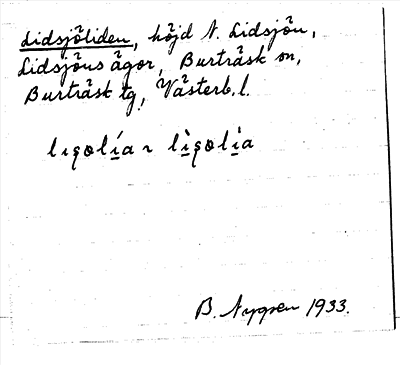 Lidsjöliden, höjd N. Lidsjön,
Lidsjöns ägor, Burträsk sn,
Burträsk tg, Västerb. l.
B. Nygren 1933.